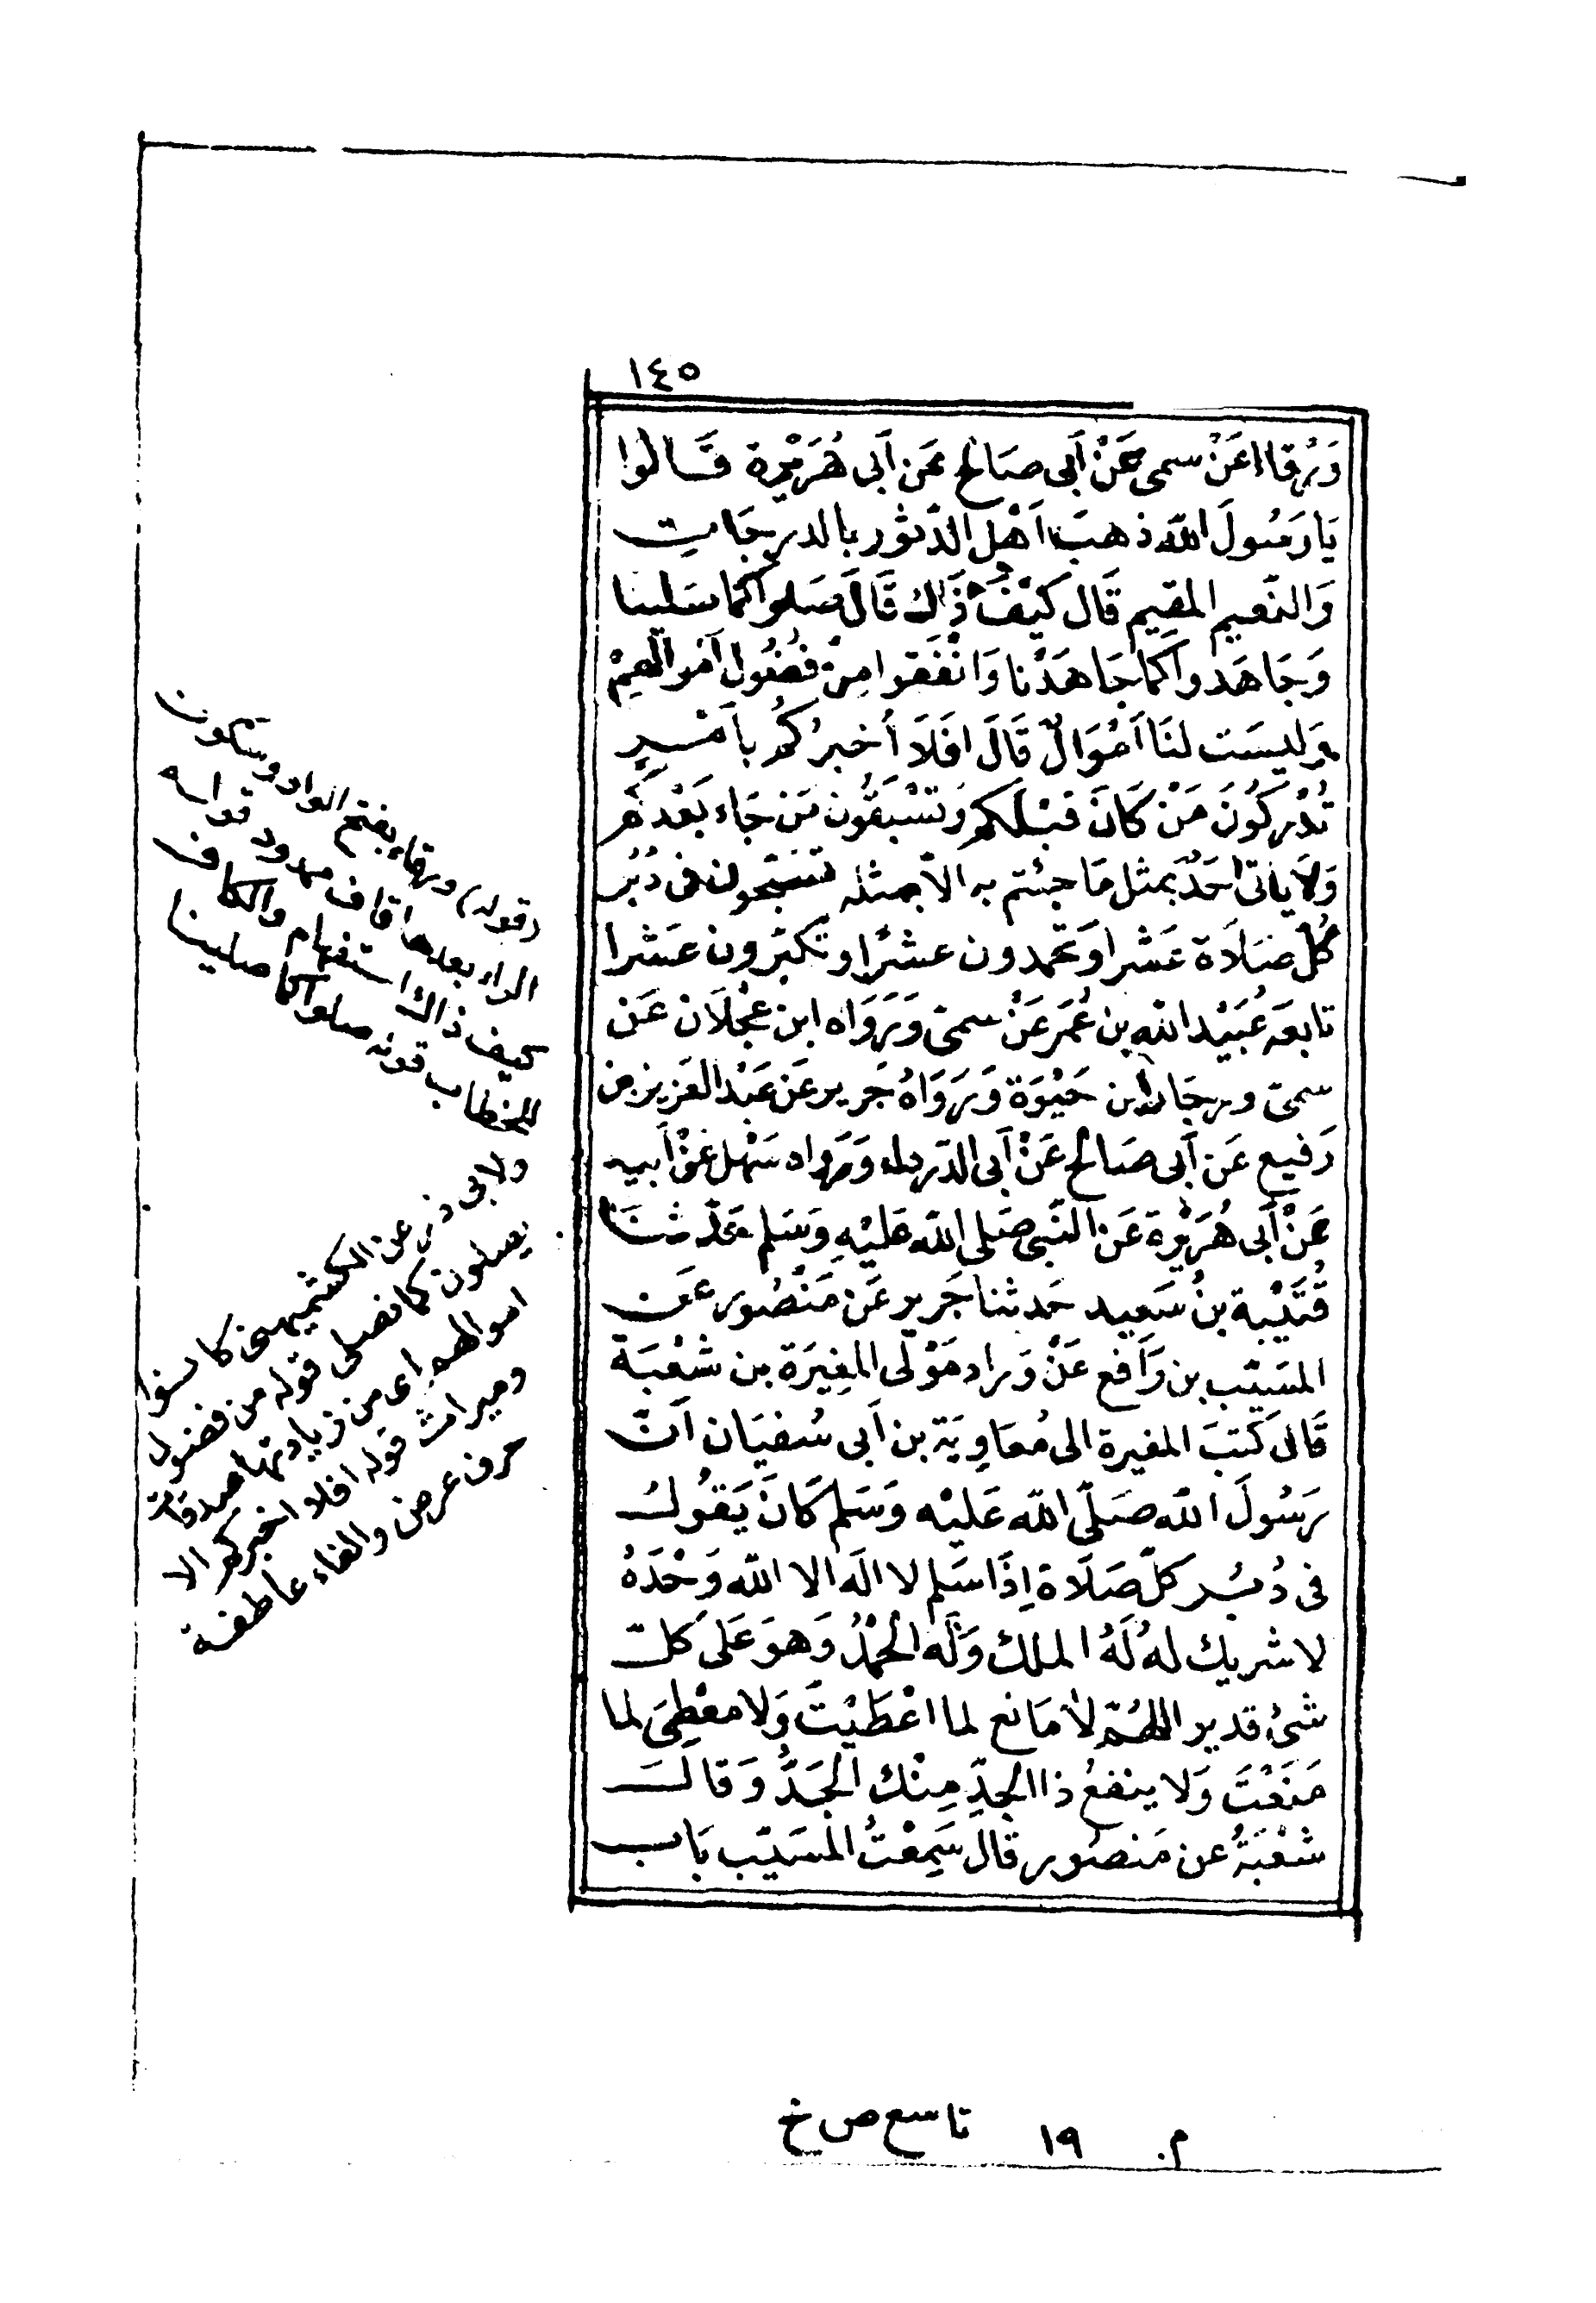 ١٤٥
وَرْقاءَ عَنْ سمى عَنْ أَبى صَالح عَن أَبى هُرَيْرة قَالوا
يَا رَسُولَ اللّه ذهبَ اَهْل الدّثور بالدرجَات
وَالنّعيم المقِيم قَال كَيْفَ ذَاك قَالَ صَلوا كمَا صَلينا
وَجَاهَدوا كمَا جَاهَدْنا وَانْفَقوا مِنْ فُضُول اَمْوالهِمْ
وَليسَت لنَا اَمْوَالٌ قَالَ افَلَا أُخبرُكُم باَمْرٍ
تُدْركُونَ مَنْ كَانَ قبْلكم وَتسْبَقُون مَن جَاء بَعْدكُم
وَلَا ياتى احَدٌ بمثل مَا جئتم به الاّ بمثله تسَبّحون فى دُبُر
كُلّ صَلَاة عَشْرا وَتحمدون عشْرًا وتكبّرون عَشْرا
تابعَه عُبَيْد اللّه بن عُمَر عَنْ سمىّ وَرَوَاه ابن عجْلَان عَن
سمىّ ورجَاء ابن حَيْوَة وَرَوَاهُ جَرير عَن عَبْد العَزيز بن
رَفيع عَن أَبى صَالح عَنْ أَبى الدّرداء وَرَواه سَهْل عَنْ أبيه
عَنْ أَبى هُرَيْرة عَن النّبى صَلى اللّه عَليْهِ وَسَلم حَدّثنَا
قُتَيْبة بنُ سَعِيد حَدثنا جَرير عَن مَنْصُور عَن
المسَيّب بن رَافع عَنْ وَراد مَوْلَى المغِيرَة بن شعْبَة
قَال كَتبَ المغيرة الى مُعَاوِيَة بن أَبى سُفيَان أَنّ
رَسُولَ اللّه صَلّى اللّه عَليْه وَسَلم كَانَ يَقُولُ
فى دُبُر كلّ صَلَاة إِذَا سَلم لا الَه الا اللّه وَحْدَهُ
لا شريك لهُ لَهُ الملك وَلَه الحَمْدُ وَهوَ عَلَى كلّ
شئ قدير اللهُمّ لاَ مَانع لما اعْطَيْتَ وَلا معْطِىَ لما
مَنَعْتَ وَلا ينفعُ ذا الجدِّ مِنْك الجَدُّ وَقالَ
شعْبَةُ عن مَنصُور قال سَمِعْتُ المُسَيّب بَاب
(قوله) ورقاء بفتح الواو وسكون
الراء بعدها قاف ممدود قوله
كيف ذاك استفهام والكاف
للخطاب قوله صلوا كما صلينا
ولابى ذر عن الكشميهنى كانوا
يصلون كما نصلى قوله من فضول
اموالهم اى من زيادتها صدقة
وميراث قوله افلا اخبركم الا
حرف عرض والفاء عاطفة
م. ١٩ تاسع ص خ